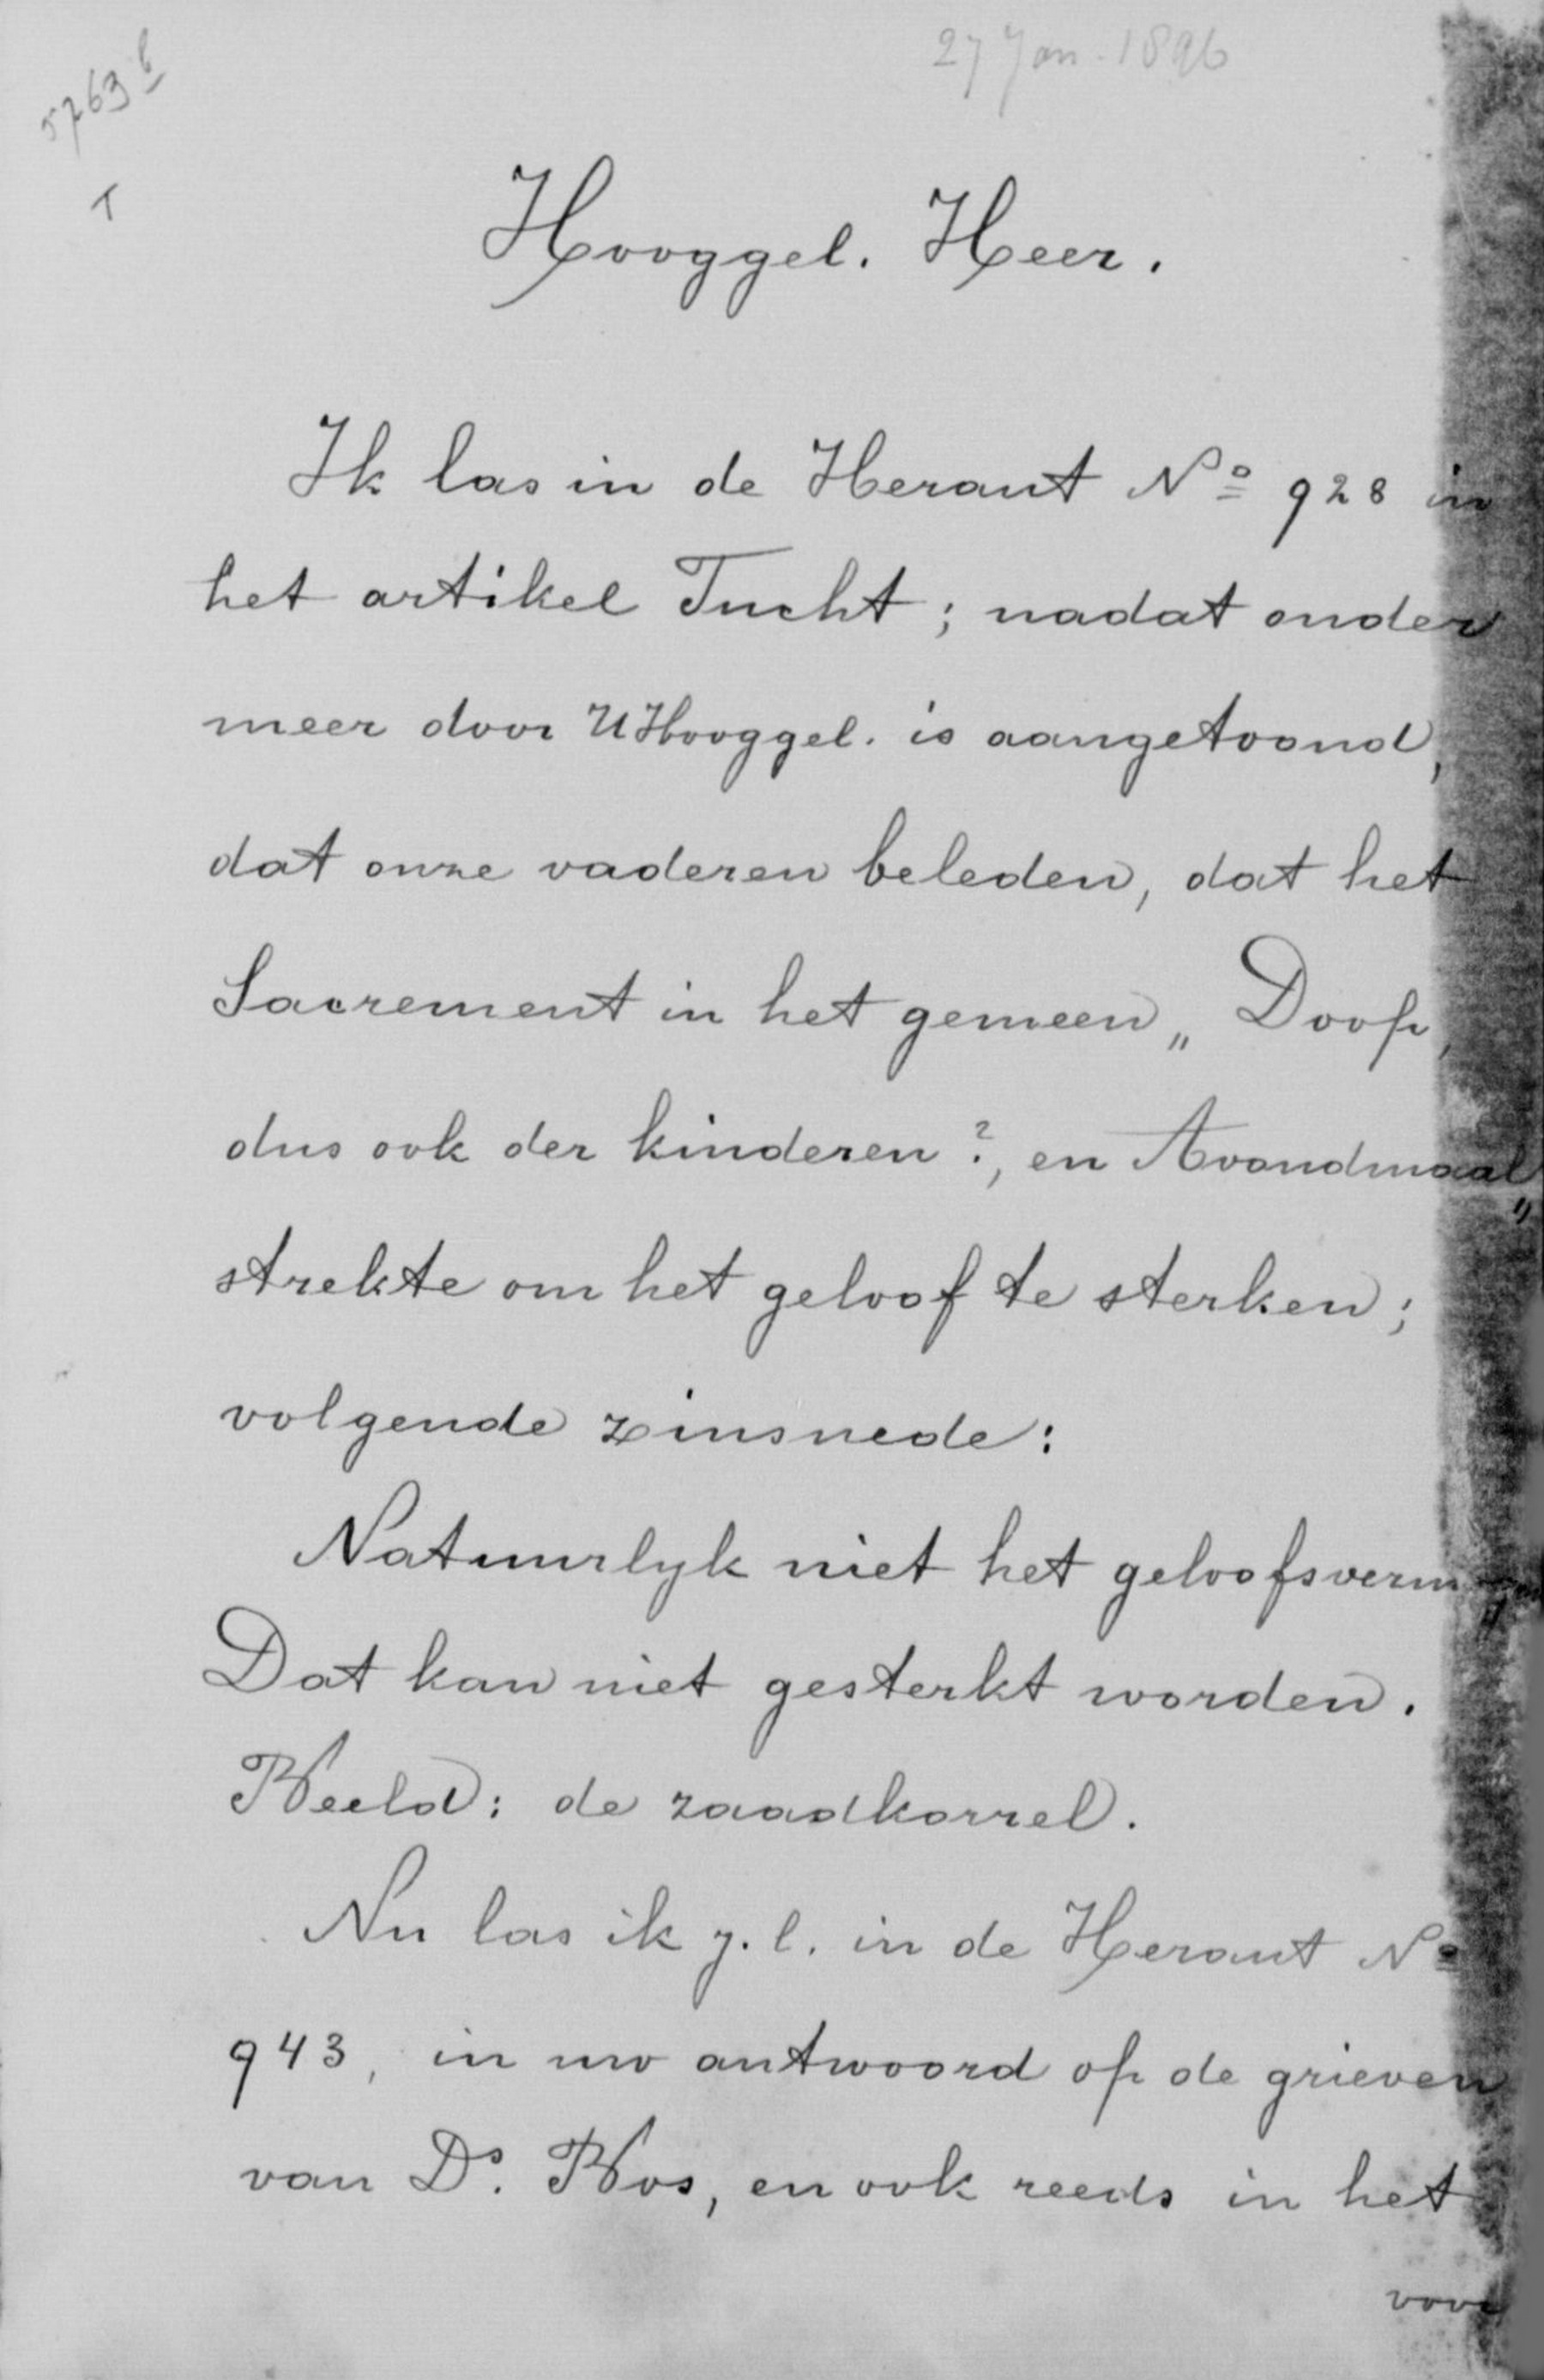 27 Jan. 1896
5763 b
T
Hooggel. Heer.
Ik las in de Heraut No 928 in
het artikel Tucht; nadat onder
meer door UHooggel. is aangetoond,
dat onze vaderen beleden, dat het
Sacrement in het gemeen „ Doop,
dus ook der kinderen?, en Avondmaal„
strekte om het geloof te sterken;
volgende zinsnede:
Natuurlyk niet het geloofsvermogen
Dat kan niet gesterkt worden.
Beeld: de zaadkorrel.
Nu las ik j.l. in de Heraut No
943, in uw antwoord op de grieven
van Ds. Bos, en ook reeds in het
voor